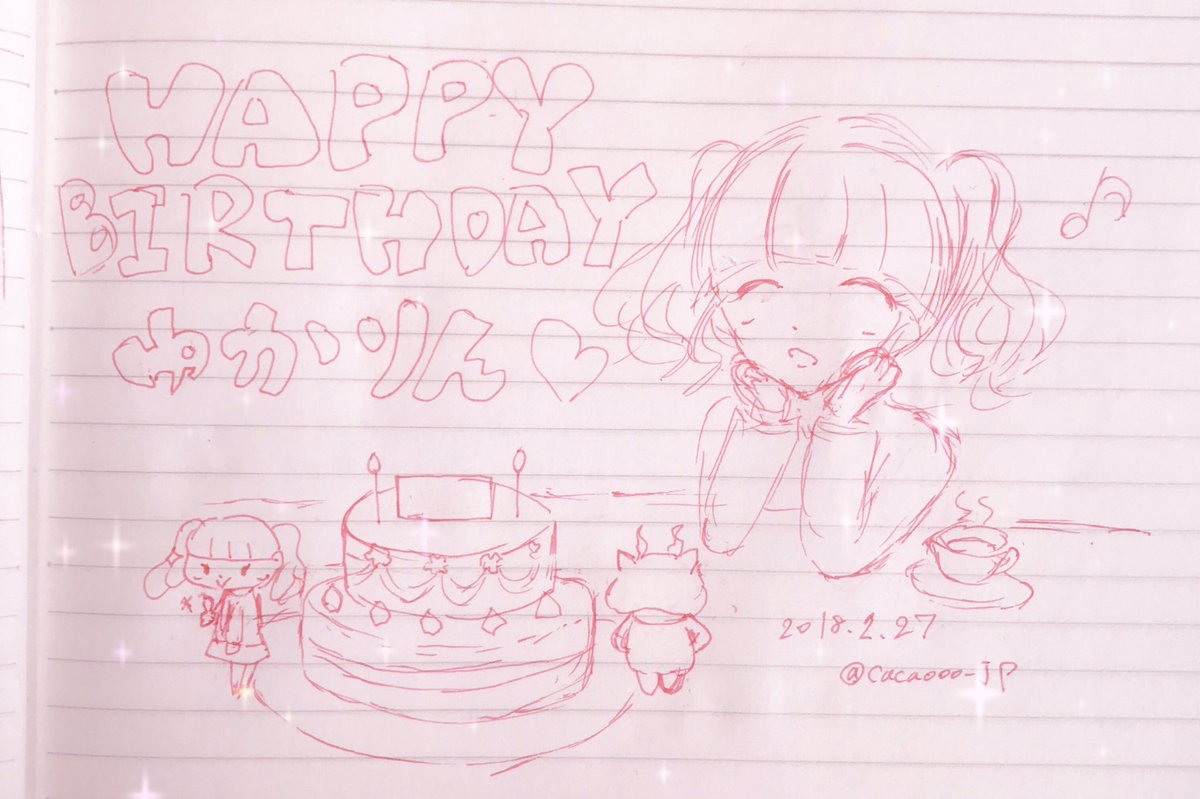 HAPPY
BIRTHDAY
ゆかりん♡
2018.2.27
@cacaooo-jp